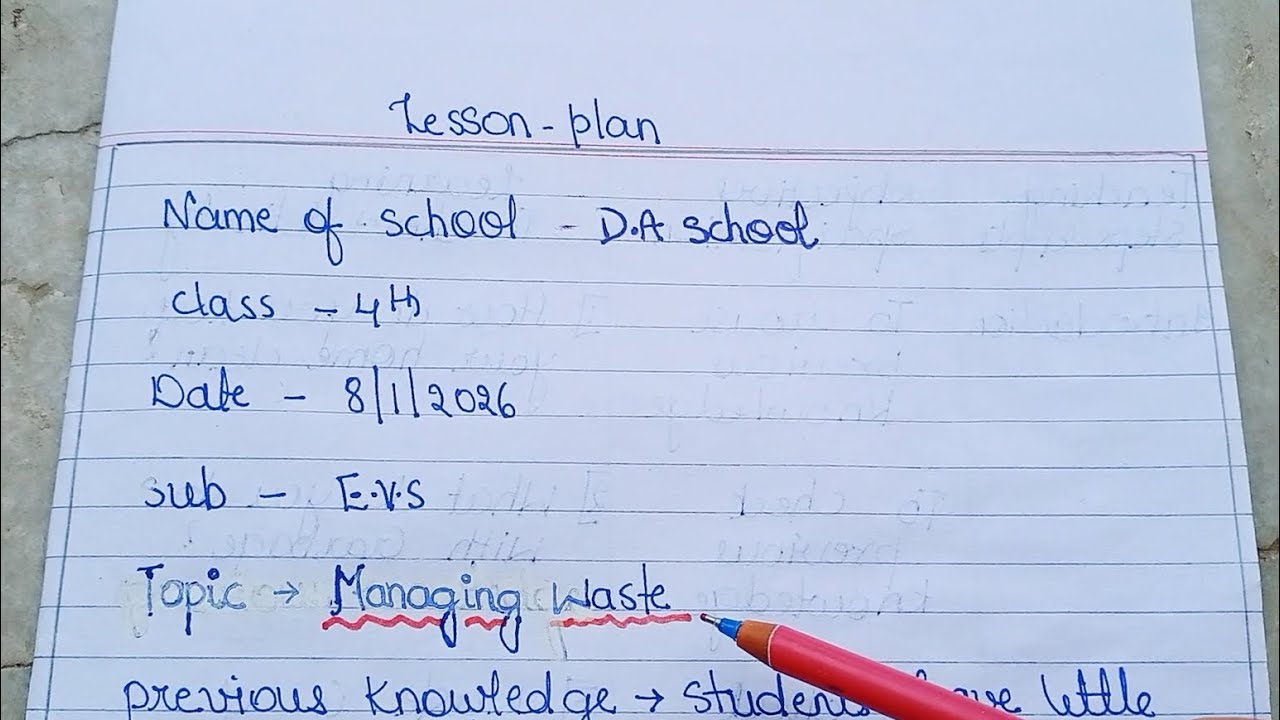 Lesson-plan
Name of school - D.A school
class - 4th
Date - 8/1/2026
sub - E.V.S
Topic → Managing waste
previous knowledge → students have little